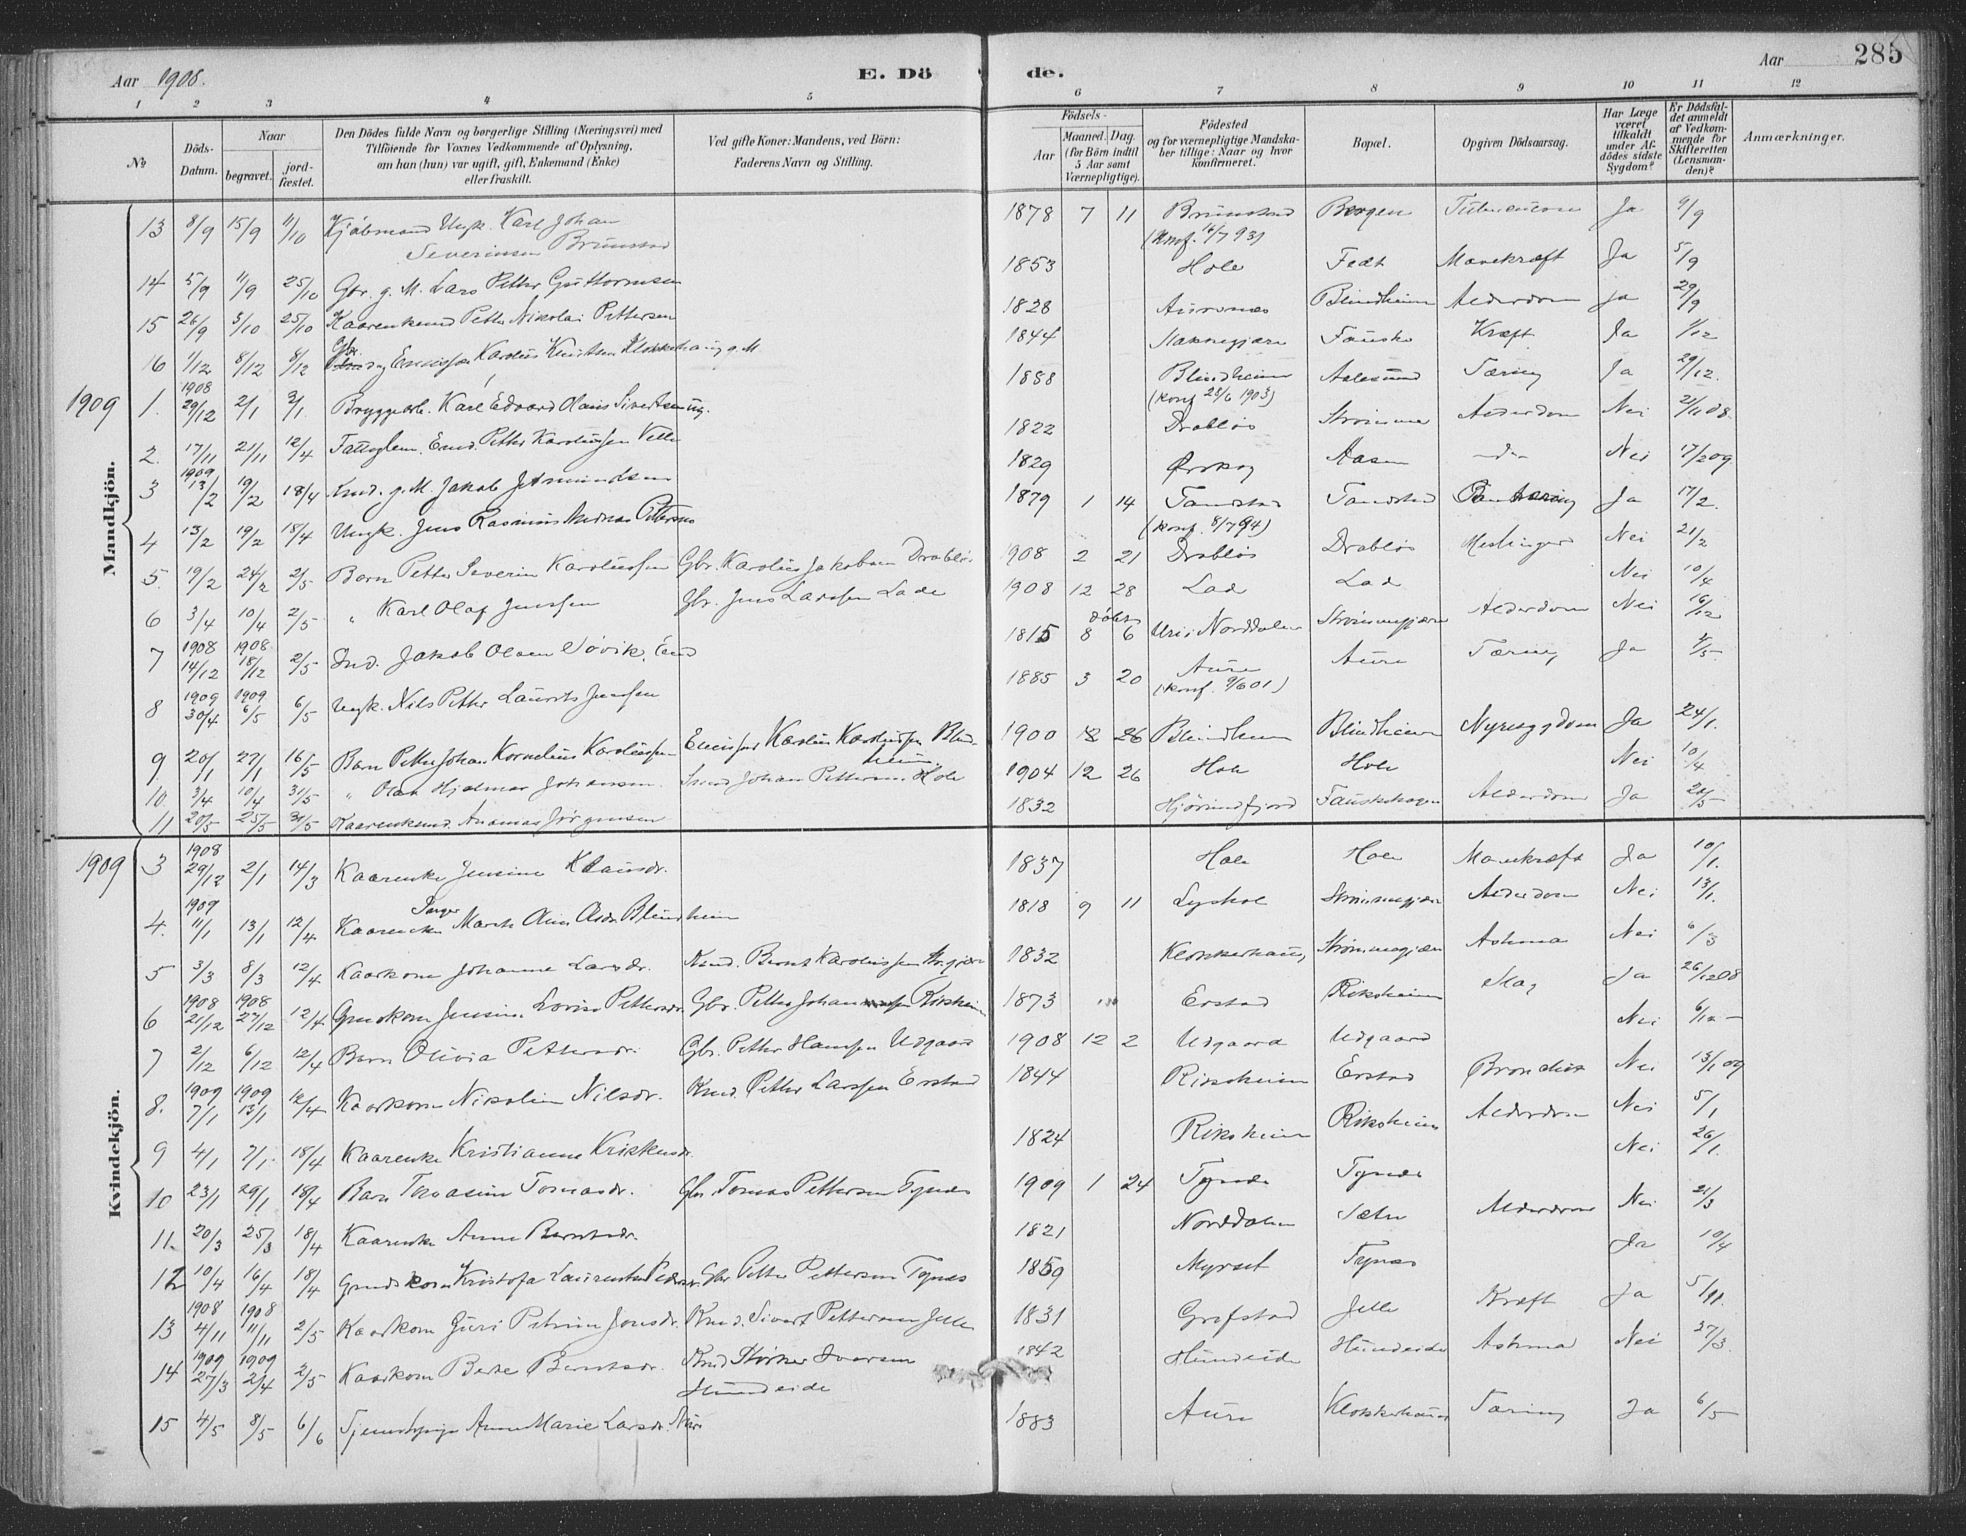 Aar 1908.
E. Dö de.
Aar
285
1 2 3 4 5 6 7 8 9 10 11 12
No
Döds-Datum.
Naar
begravet.
jord-fæstet.
Den Dödes fulde Navn og borgerlige Stilling (Næringsvei) med
Tilföiende for Voxnes Vedkommende af Oplysning,
om han (hun) var ugift, gift, Enkemand (Enke)
eller fraskilt.
Ved gifte Koner: Mandens, ved Börn:
Faderens Navn og Stilling.
Födsels-
Aar
Maaned. Dag.
(for Börn indtil
5 Aar samt
Værnepligtige).
Födested
og for værnepligtige Mandska-
ber tillige: Naar og hvor
konfirmeret.
Bopæl.
Opgiven Dödsaarsag.
Har Læge
været
tilkaldt
under Af-
dödes sidste
Sygdom?
Er Dödsfal-
det anmeldt
af Vedkom-
mende for
Skifteretten
(Lensman-
den)?
Anmærkninger.
Mandkjön.
13 8/9 15/9 11/10 Kjöbmand Ungk. Karl Johan 1878 7 11 Brunstad Bergen Tuberculose Ja 9/9
Severinsen Brunstad (Konf. 16/7 93)
14 5/9 11/9 25/10 Gbr. g. M. Lars Petter Guttormsen 1853 Hole Fedt Mavekræft Ja 5/9
15 26/9 3/10 25/10 Kaarenkemd Petter Nikolai Pettersen 1828 Aursnes Blindheim Alderdom ja 29/9
16 1/12 8/12 8/12 Gbr. Karolus Knutsen Klokkerhaug g. M 1844 Fauske Kræft Ja 1/12
1909
1. 1908 29/12 2/1 3/1. Bryggearb. Karl Edvard Olaus Sivertsen ug. 1888 Blindheim Aalesund Tæring Ja 29/12.
(Konf 28/6 1903)
2. 17/11 21/11 12/4 Fattiglem. Emd. Petter Karolussen Velle 1822 Drabløs Alderdom Nei 21/11 08.
3 1909 13/2 19/2 18/4 g. M. Jakob J. Asmundsen 1829 Ørskog Aasen Nei 17/2 09
4 13/2 19/2 18/4 Ungk. Jens Rasmus Andreas Pettersen 1879 1 14 Tandstad Tandstad Ja 17/2.
(Konf. 8/7 94)
5. 19/2 24/2 2/5 Barn Petter Severin Karolussen Gbr. Karolus Jakobsen Drabløs 1908 2 21 Drabløs Drabløs Meslinger Nei 21/2
6 3/4 10/4 2/5 " Karl Olaf Jenssen Gbr. Jens Larssen Lade 1908 12 28 Lad Lad Nei 10/4
7 1908 14/12 1908 18/12 2/5 Ind. Jakob Olsen Vøvik, Emd 1815 8 6 døbt Uri i Norddalen Strømmegjære Alderdom Nei 16/12
8 1909 30/4 1909 6/5 6/5 Ungk. Nils Petter Laurits Jenssen 1885 3 20 Aure Aure Tæring Ja 4/5.
(Konf. 9/6 01)
9. 20/1 27/1 16/5 Barn Petter Johan Kornelius Karolussen Karolus Karolussen Blindheim 1900 12 26 Blindheim Blindheim Nyresygdom Ja 24/1.
10. 3/4 10/4 31/5 " Olav Hjalmar Johansen Johan Pettersen Hole 1904 12 26 Hole Hole Nei 10/4
11 20/5 25/5 31/5 Kaarenkemd. Ananias Jørgensen 1832 Hjørundfjord Fauskehagen Alderdom Ja 20/5
Kvindekjön.
1909
3 1908 29/12 2/1 14/3 Kaarenke Jensine Klausdr. 1837 Hole Hole Mavekræft Ja 10/1.
4. 1909 11/1 13/1 12/4 Kaarenke Marte Oline Olsdr. Blindheim 1818 9 11 Lyshol Strømmegjære Alderdom Nei 13/1.
5 3/3 8/3 12/4 Kaarkone Johanne Larsdr. Kmd. Bernt Karolussen 1832 Klokkerhaug Strømmegjære Astma Nei 6/3
6 1908 21/12 1908 27/12 12/4. Grmskone Jensine Lovise Pettersdr. Gbr. Petter Johanssen Riksheim 1873 Erstad Riksheim Slag Ja 26/12 08
7 2/12 6/12 12/4 Barn Olivia Pettersdr. Gbr. Petter Hanssen Udgaard 1908 12 2 Udgaard Udgaard Nei 6/12
8. 1909 7/1 1909 13/1 12/4 Kaarkone Nikoline Nilsdr. Kmd. Petter Larssen Erstad 1844 Riksheim Erstad Bronchit Nei 13/1 09
9 4/1 7/1. 18/4 Kaarenke Kristianne 1824 Riksheim Riksheim Alderdom Nei 5/1
10 23/1 29/1 18/4 Barn Tomasine Tomasdr. Gbr Tomas Pettersen Tynes 1909 1 24 Tynes Tynes Nei 26/1.
11. 20/3 25/3 18/4 Kaarenke Anne Berntsdr. 1821 Norddalen Sæter Alderdom Nei 21/3
12 10/4 16/4 18/4 Grmdskone Kristofa Laurentse Pedersdr. Gbr Petter Pettersen Tynes 1859 Myrset Tynes Ja 10/4
13 1908 4/11 1908 11/11 2/5 Kaarkone Guri Petrine Jonsdr. Kmd. Sivert Pettersen Jelle 1831 Grefstad Jelle Kræft Ja 5/11.
14 1909 27/3 1909 2/4 2/5 Kaarkone Berte Berntsdr. Kmd Størker Iversen 1842 Hundeide Hundeide Astma Nei 27/3.
Hundeide
15 4/5 8/5 6/6 Tjenestepige Anne Marie Larsdr. Aure 1883 Aure Klokkerhaug Tæring Ja 6/5